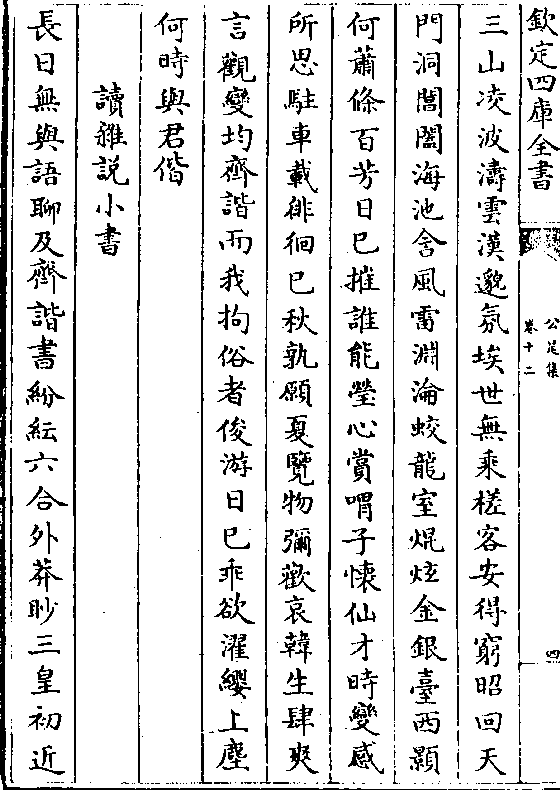 欽定四庫全書
公是集
卷十二
四
三山凌波濤雲漢邈氛埃世無乘槎客安得窮昭回天
門洞閶闔海池含風雷淵淪蛟龍室焜炫金銀臺西顥
何蕭條百芳日已摧誰能瑩心賞喟子懐仙才時變感
所思駐車載徘徊已秋孰願夏覽物彌歡哀韓生肆爽
言觀變均齊諧而我拘俗者俊游日已乖欲濯纓上塵
何時與君偕
讀雜説小書
長日無與語聊及齊諧書紛紜六合外莽眇三皇初近